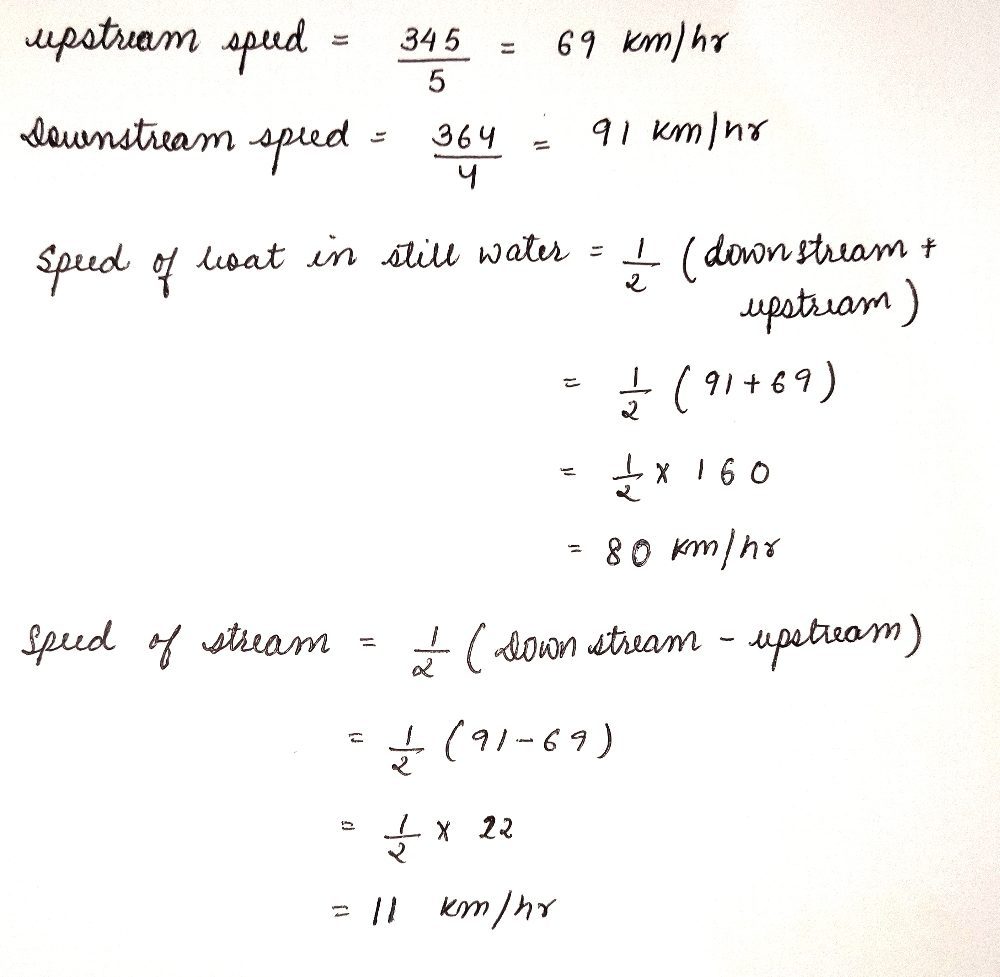 upstream speed = 345/5 = 69 km/hr
Downstream speed = 364/4 = 91 km/hr
Speed of boat in still water = 1/2 (downstream +
upstream)
= 1/2 (91+69)
= 1/2 x 160
= 80 km/hr
Speed of stream = 1/2 (Down stream - upstream)
= 1/2 (91-69)
= 1/2 x 22
= 11 km/hr